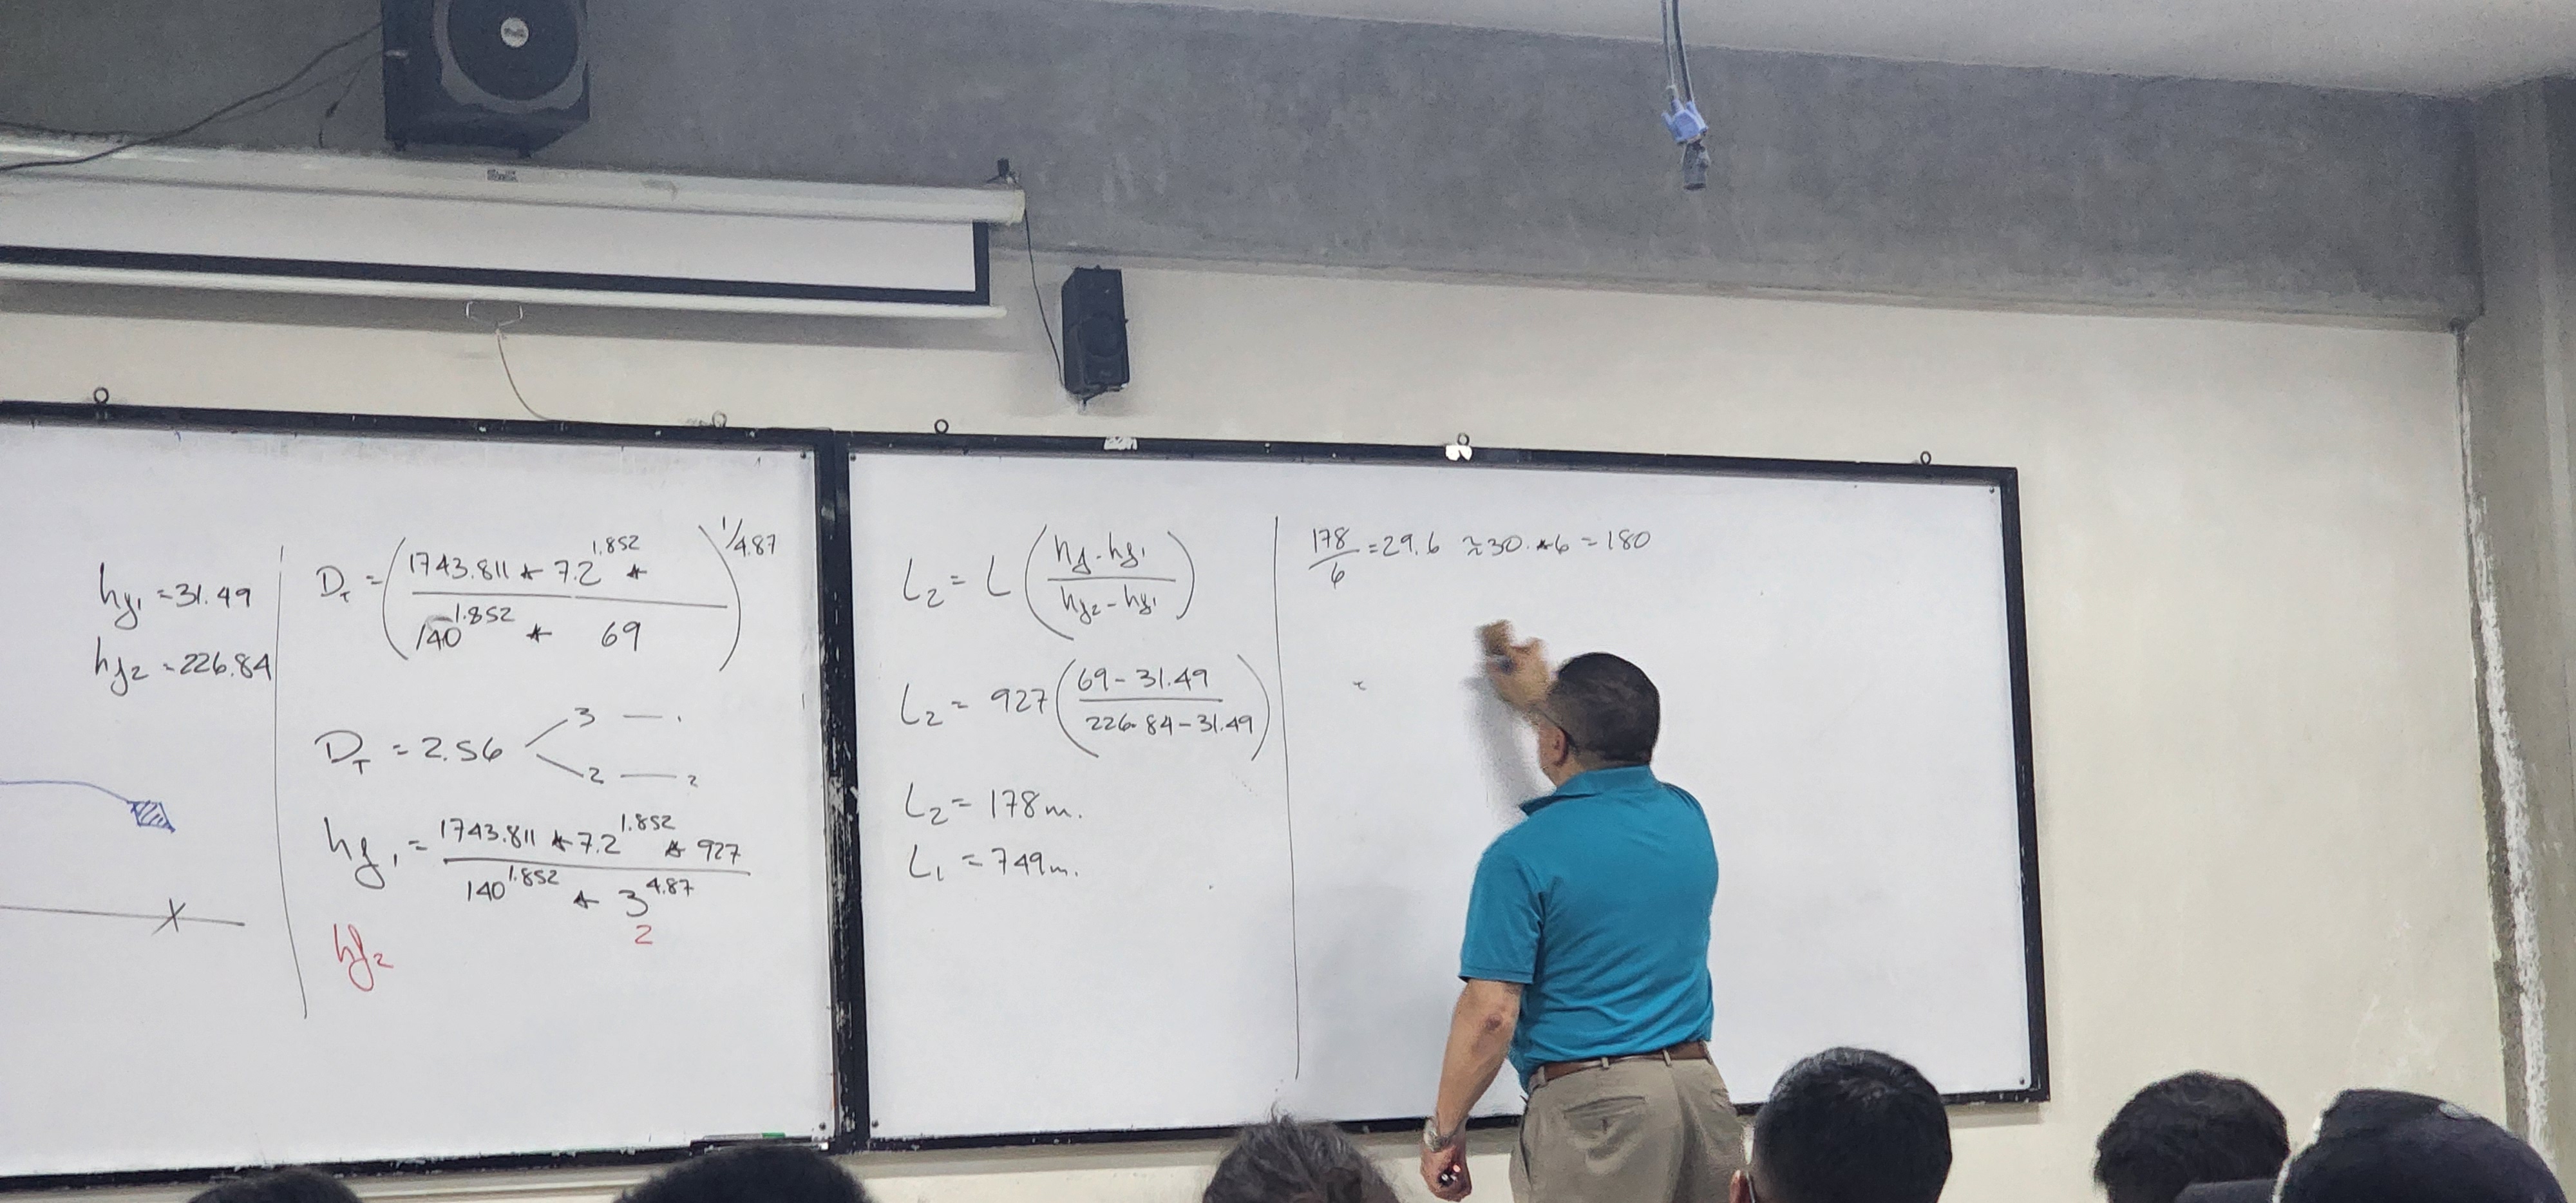 hf₁ = 31.49
hf₂ = 226.84
D_T = (1743.811 * 7.2^1.852 * / 140^1.852 * 69)^1/4.87
D_T = 2.56 < 3 — .
2 — 2
hf₁ = 1743.811 * 7.2^1.852 * 927 / 140^1.852 * 3^4.87
2
hf₂
L₂ = L (hf - hf₁ / hf₂ - hf₁)
L₂ = 927 (69 - 31.49 / 226.84 - 31.49)
L₂ = 178 m.
L₁ = 749 m.
178 / 6 = 29.6 ≈ 30. * 6 = 180